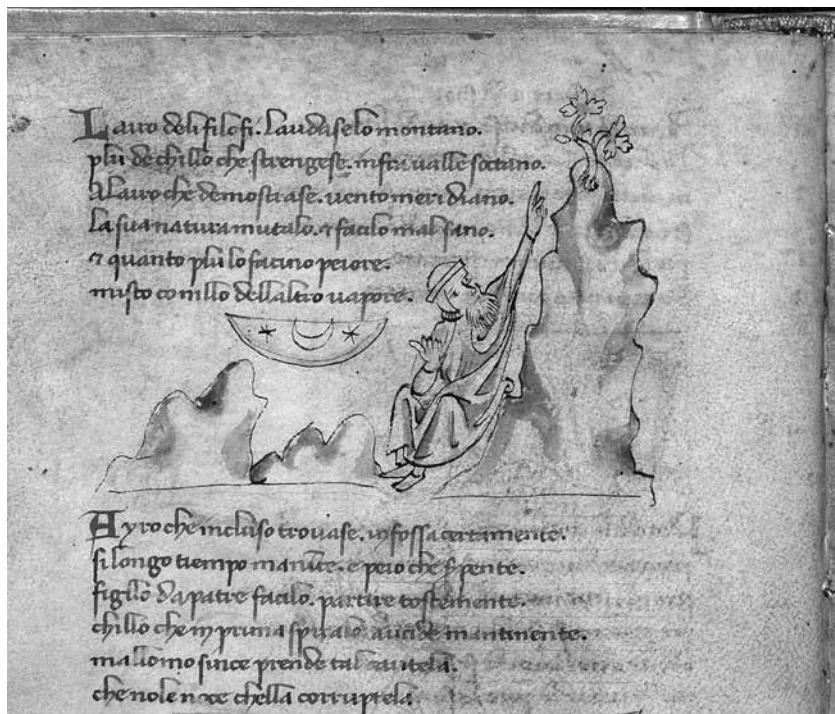 Lauro deli filosofi. laudaselo montano.
plu de chillo che strengese. infra valle soctano.
A lauro che demostrase. vento meridiano.
la sua natura mutalo. et facilo mal sano.
et quanto plu lo facino peiore.
misto con illo dell altro vapore.
Ayro che incluso trovase. in fossa certamente.
si longo tiempo
figllo da patre facilo. partire tostemente.
chillo che in prima spiralo. aucide mantinente.
ma llomo si nce prende tal cautela.
che nole noce chella corruptela.